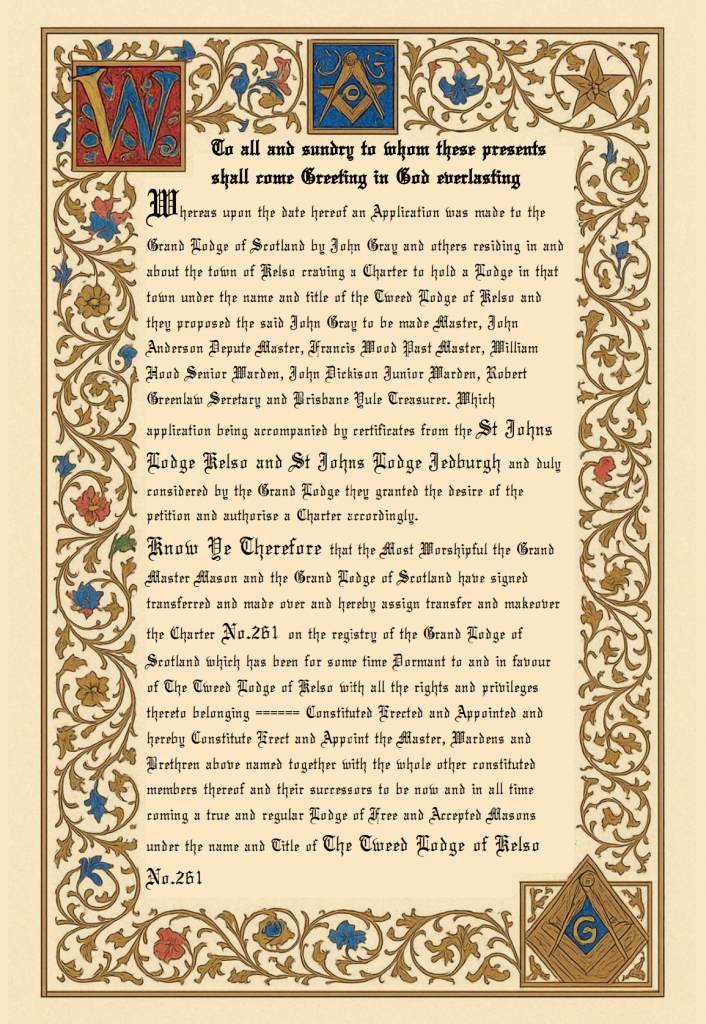 W
To all and sundry to whom these presents
shall come Greeting in God everlasting
Whereas upon the date hereof an Application was made to the
Grand Lodge of Scotland by John Gray and others residing in and
about the town of Kelso craving a Charter to hold a Lodge in that
town under the name and title of the Tweed Lodge of Kelso and
they proposed the said John Gray to be made Master, John
Anderson Depute Master, Francis Wood Past Master, William
Hood Senior Warden, John Dickison Junior Warden, Robert
Greenlaw Seretary and Brisbane Yule Treasurer. Which
application being accompanied by certificates from the St Johns
Lodge Kelso and St Johns Lodge Jedburgh and duly
considered by the Grand Lodge they granted the desire of the
petition and authorise a Charter accordingly.
Know Ye Therefore that the Most Worshipful the Grand
Master Mason and the Grand Lodge of Scotland have signed
transferred and made over and hereby assign transfer and makeover
the Charter No.261 on the registry of the Grand Lodge of
Scotland which has been for some time Dormant to and in favour
of The Tweed Lodge of Kelso with all the rights and privileges
thereto belonging ====== Constituted Erected and Appointed and
hereby Constitute Erect and Appoint the Master, Wardens and
Brethren above named together with the whole other constituted
members thereof and their successors to be now and in all time
coming a true and regular Lodge of Free and Accepted Masons
under the name and Title of The Tweed Lodge of Kelso
No.261
G